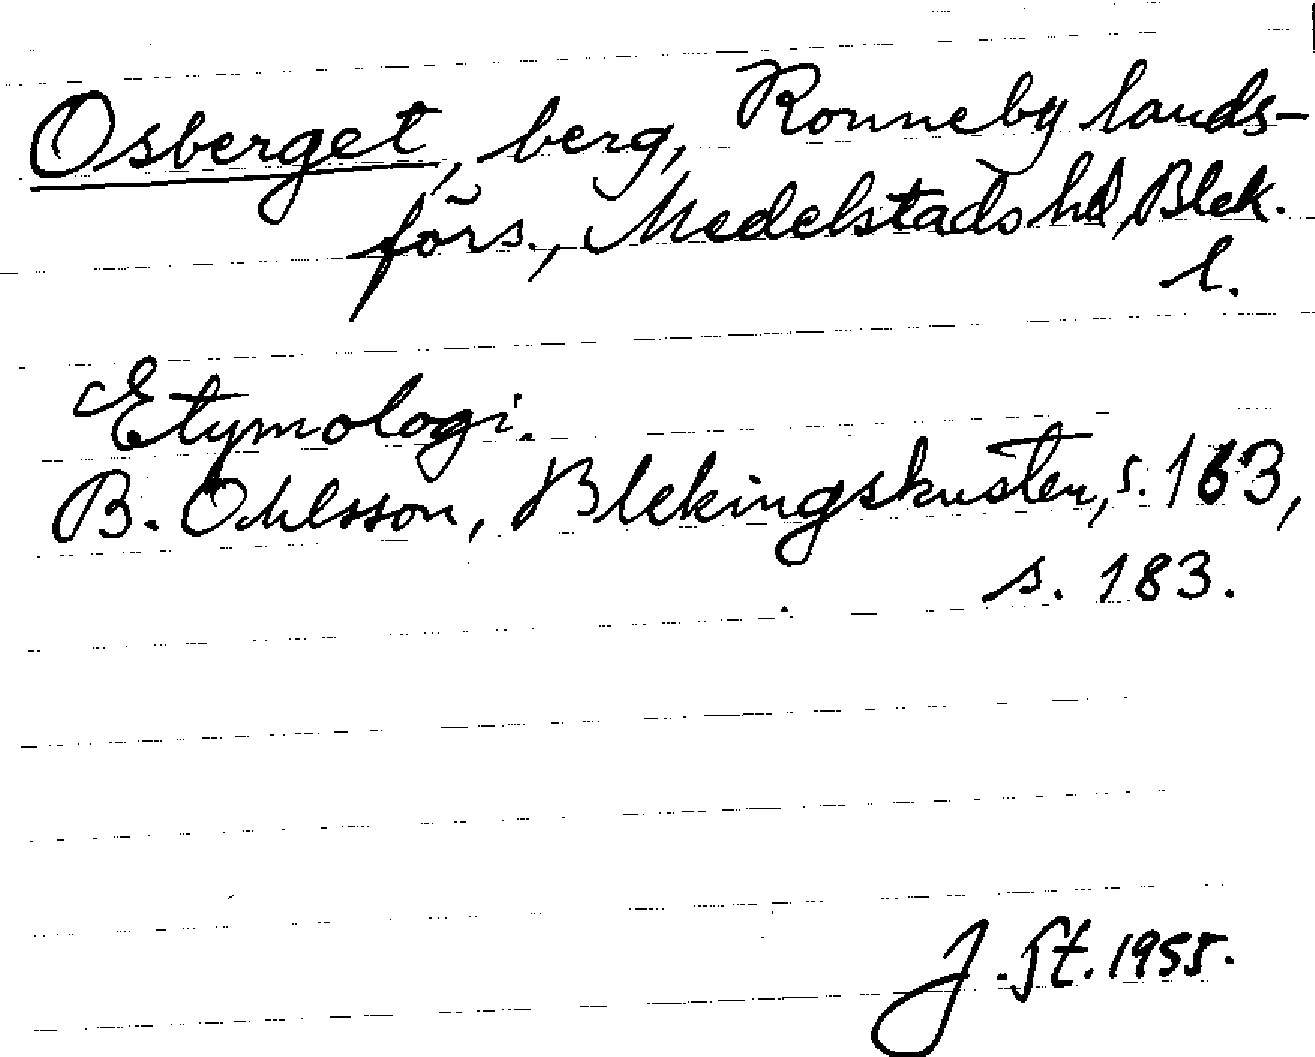 Osberget, berg, Ronneby lands-
förs., Medelstads hd, Blek.
l.
Etymologi.
B. Ohlsson, Blekingskusten, s. 163,
s. 183.
J. St. 1955.